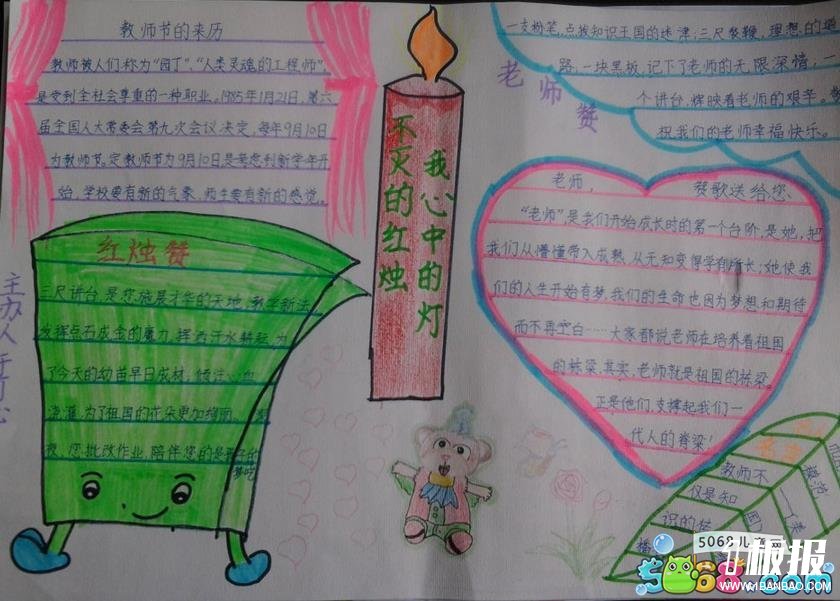 教师节的来历
教师被人们称为“园丁”、“人类灵魂的工程师”,
是受到全社会尊重的一种职业。1985年1月21日,第六
届全国人大常委会第九次会议决定,每年9月10日
为教师节。定教师节为9月10日是考虑到新学年开
始,学校要有新的气象,师生要有新的感觉。
红烛赞
三尺讲台,是您施展才华的天地,教学新法,
发挥点石成金的魔力,挥洒汗水耕耘,为
了今天的幼苗早日成材;倾注心血
浇灌,为了祖国的花朵更加绚丽。
夜,您批改作业,陪伴您的是孩子的
梦呓
主办人
我心中的灯
不灭的红烛
老师赞
一支粉笔,点拨知识王国的迷津;三尺教鞭,理想的
路,一块黑板,记下了老师的无限深情;一
个讲台,辉映着老师的艰辛。
祝我们的老师幸福快乐。
老师, 赞歌送给您
“老师”是我们开始成长时的第一个台阶,是她,把
我们从懵懂带入成熟,从无知变得学有所长;她使我
们的人生开始有梦,我们的生命也因为梦想和期待
而不再空白……大家都说老师在培养着祖国
的栋梁,其实,老师就是祖国的栋梁。
正是他们,支撑起我们一
代人的脊梁!
教师不
仅是知
识的
5068儿童网
5068.com
板报
WWW.1BANBAO.COM